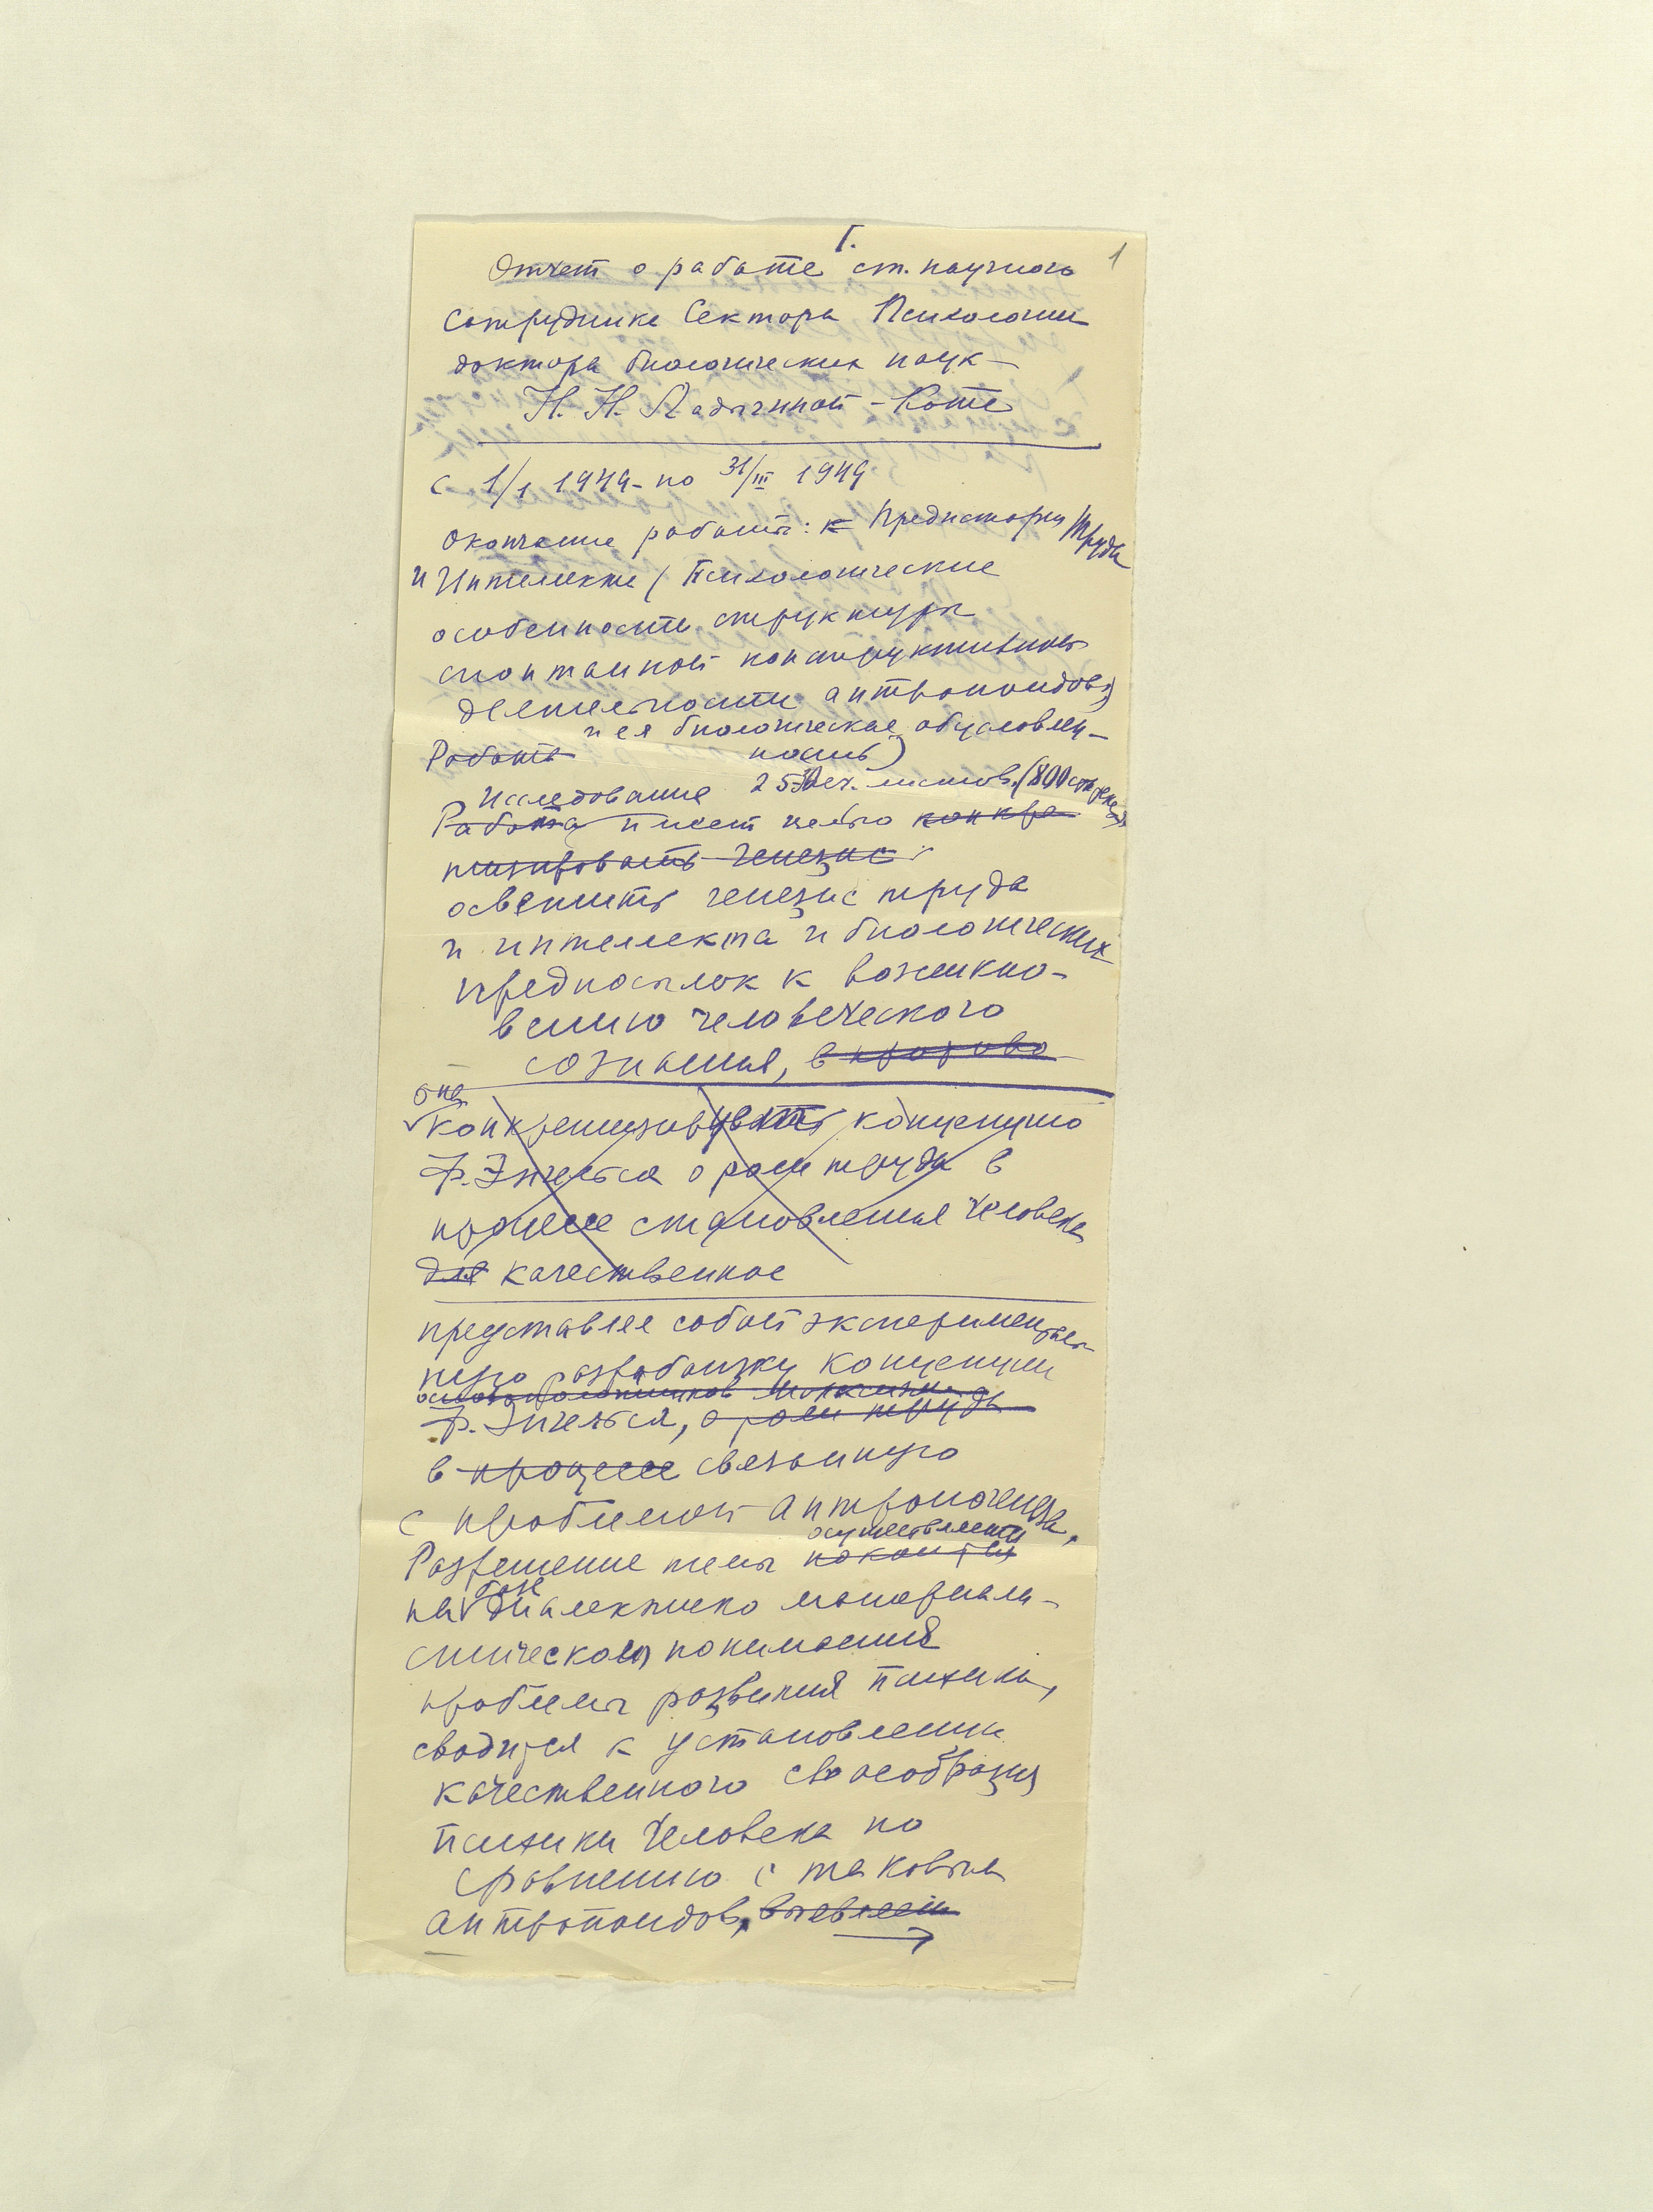 I.
1
Отчет о работе ст. научного
сотрудника Сектора Психологии
доктора биологических наук
Н. Н. Ладыгиной-Котс
с 1/1 1949 - по 31/III 1949
Окончание работы: к Предистории Труда
и Интеллекта (Психологические
особенности структуры
спонтанной конструктивной
деятельности антропоидов
и ея биологическая обусловлен-
Работа ность)
Исследование 25 печ. листов. (800 страниц)
Работа имеет целью конкре
тизировать генезис
осветить генезис труда
и интеллекта и биологических
предпосылок к возникно-
вению человеческого
сознания, в
она
конкретизирует концепцию
Ф. Энгельса о роли труда в
процессе становления человека
для качественное
представляя собой эксперименталь-
ную разработку концепции
основоположников марксизма
Ф. Энгельса, о роли труда
в процессе связанную
с проблемой антропогенеза.
осуществляется
Разрешение темы
базе
на диалектико материали-
стического понимания
проблемы развития психики,
сводится к установлению
качественного своеобразия
психики человека по
сравнению с таковым
антропоидов,